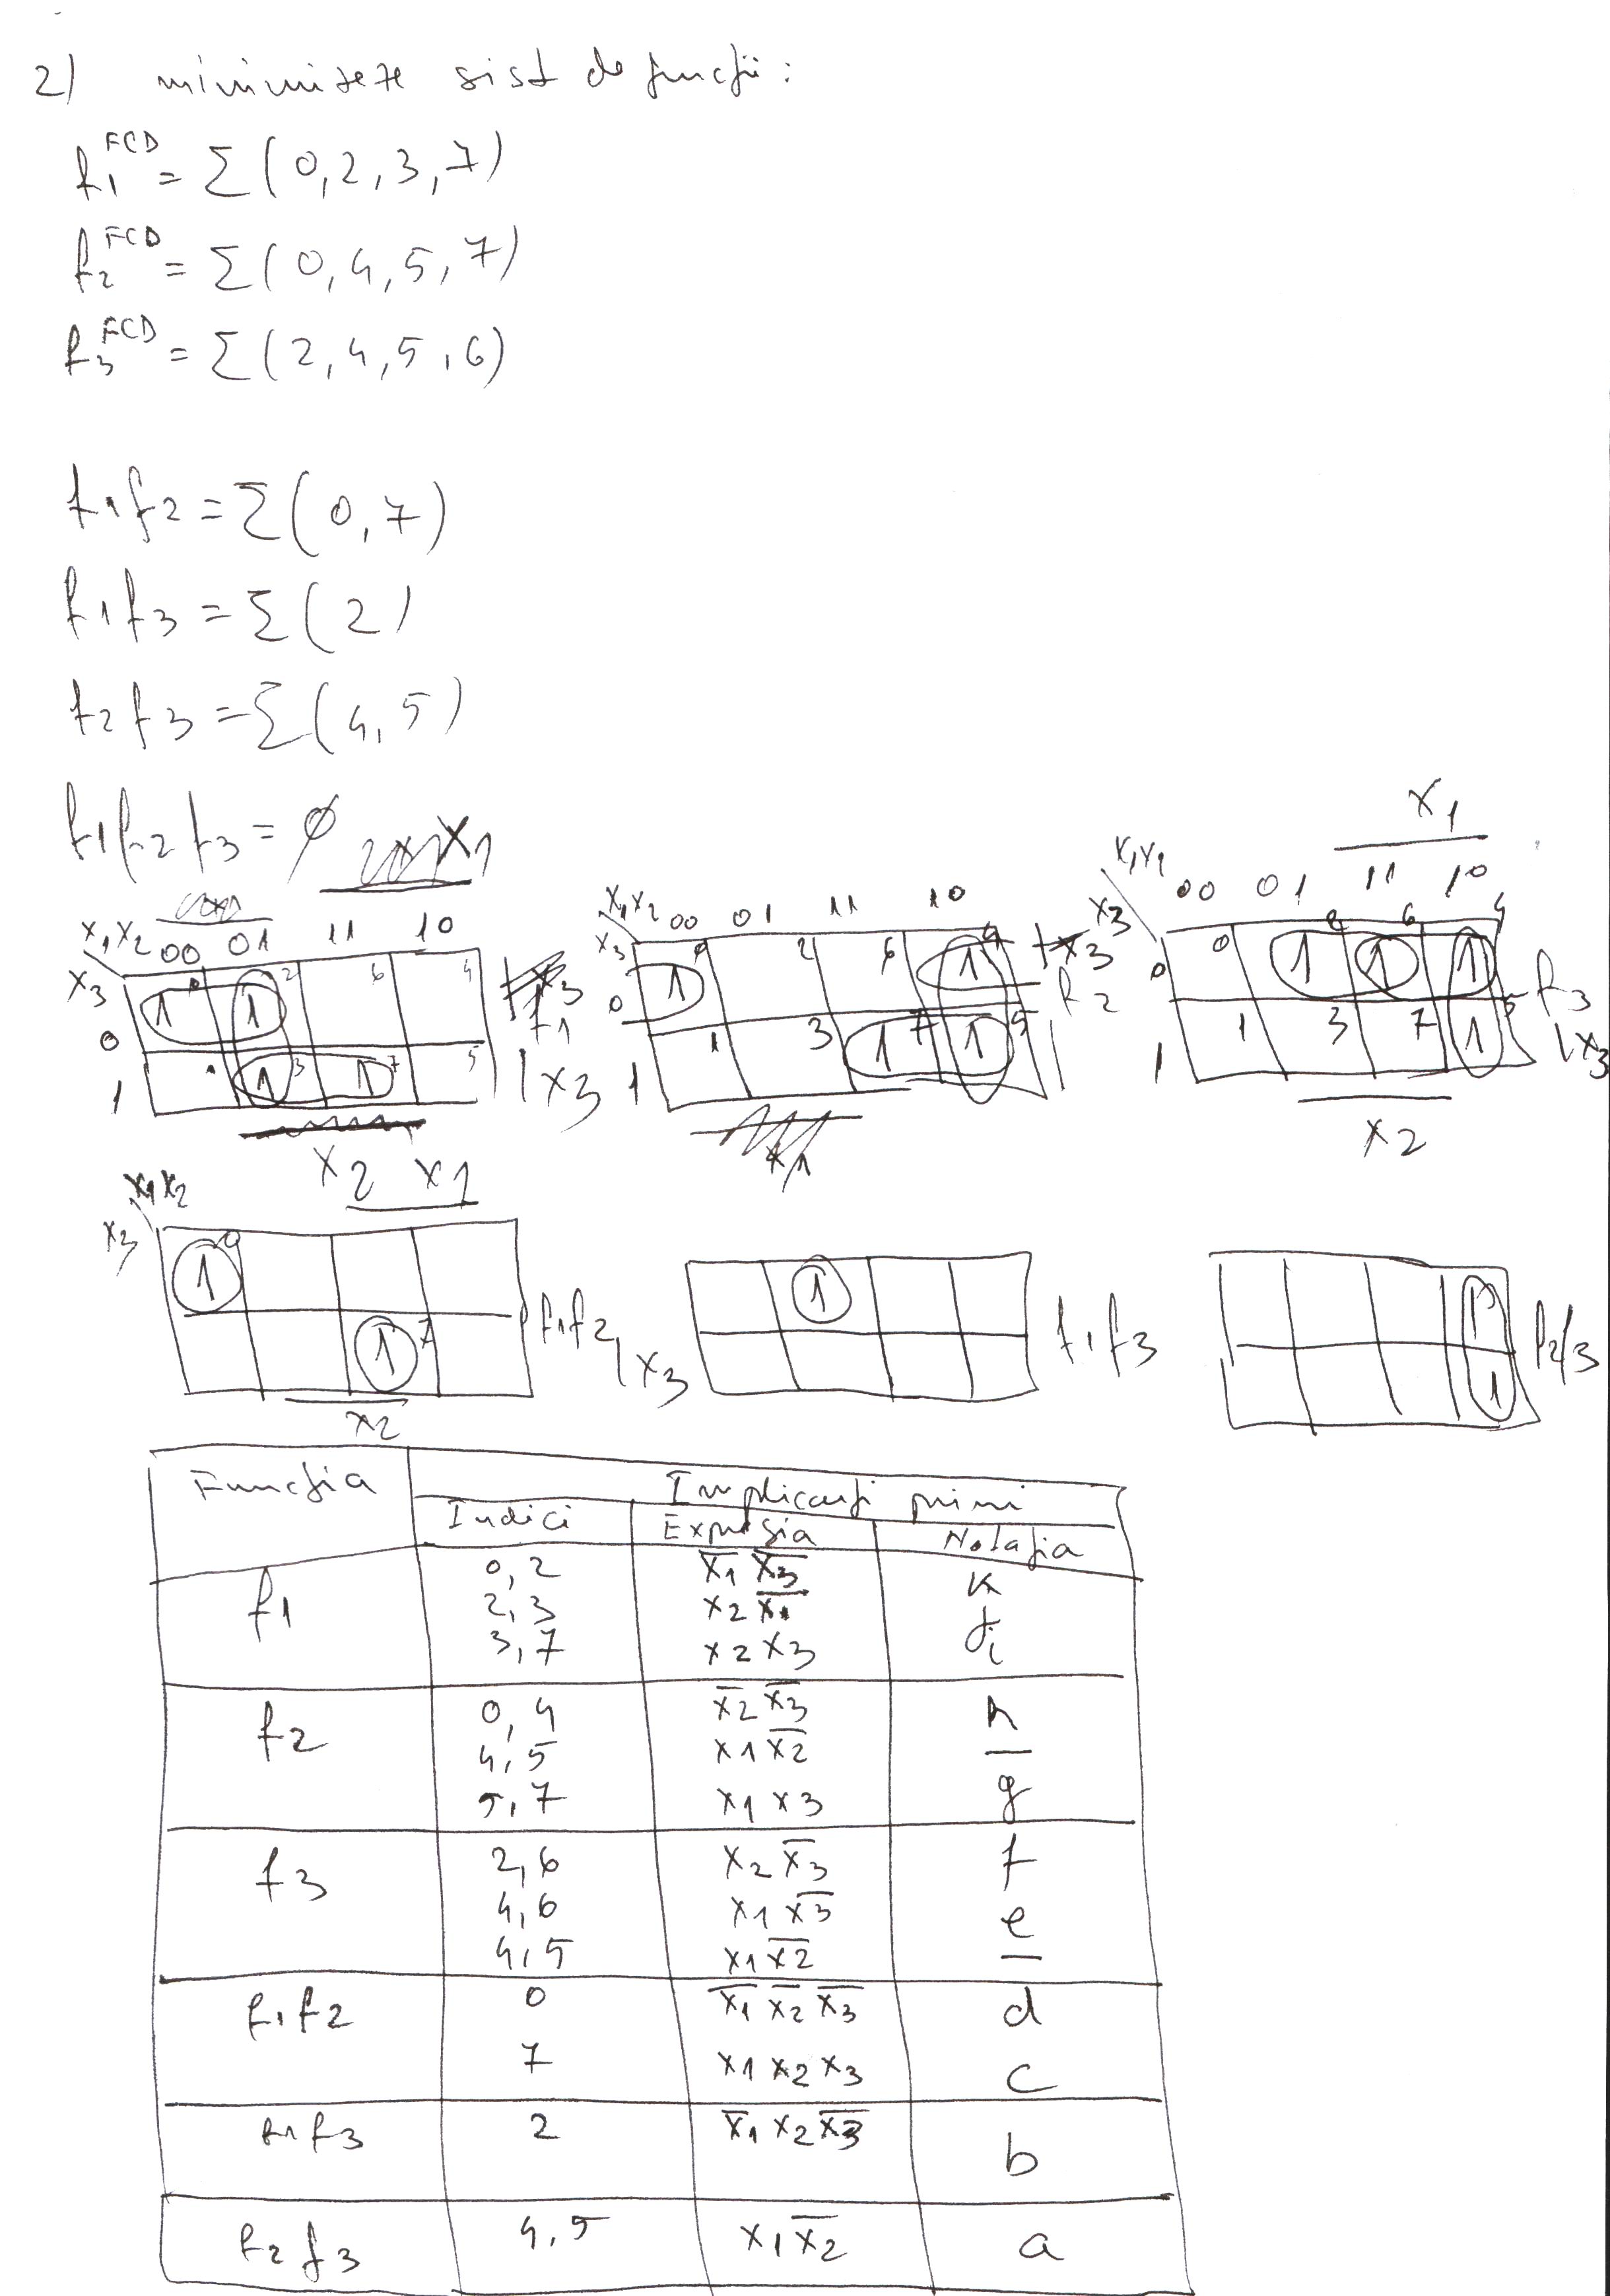 2) minimizeze sist de funcții:
f1^FCD = Σ(0,2,3,7)
f2^FCD = Σ(0,4,5,7)
f3^FCD = Σ(2,4,5,6)
f1f2 = Σ(0,7)
f1f3 = Σ(2)
f2f3 = Σ(4,5)
f1f2f3 = ∅
x1
x1
x1x2 00 01 11 10
x3
0 1 0 1 2 6 4
1 1 3 1 7 5
f1
x3
x2
x1x2 00 01 11 10
x3
0 1 0 2 6 1 4
1 1 3 1 7 1 5
f2
x3
x1
00 01 11 10
x3
0 0 1 2 1 6 1 4
1 1 3 7 1 5
f3
x3
x2
x1x2 x1
x3
1 0
1 7
f1f2
x3
x2
1
f1f3
1
1
f2f3
Funcția Implicanți primi
Indici Expresia Notația
f1 0,2 x̅1 x̅3 k
2,3 x2 x̅1 j
3,7 x2 x3 i
f2 0,4 x̅2 x̅3 h
4,5 x1 x̅2 —
5,7 x1 x3 g
f3 2,6 x2 x̅3 f
4,6 x1 x̅3 e
4,5 x1 x̅2 —
f1f2 0 x̅1 x̅2 x̅3 d
7 x1 x2 x3 c
f1f3 2 x̅1 x2 x̅3 b
f2f3 4,5 x1 x̅2 a